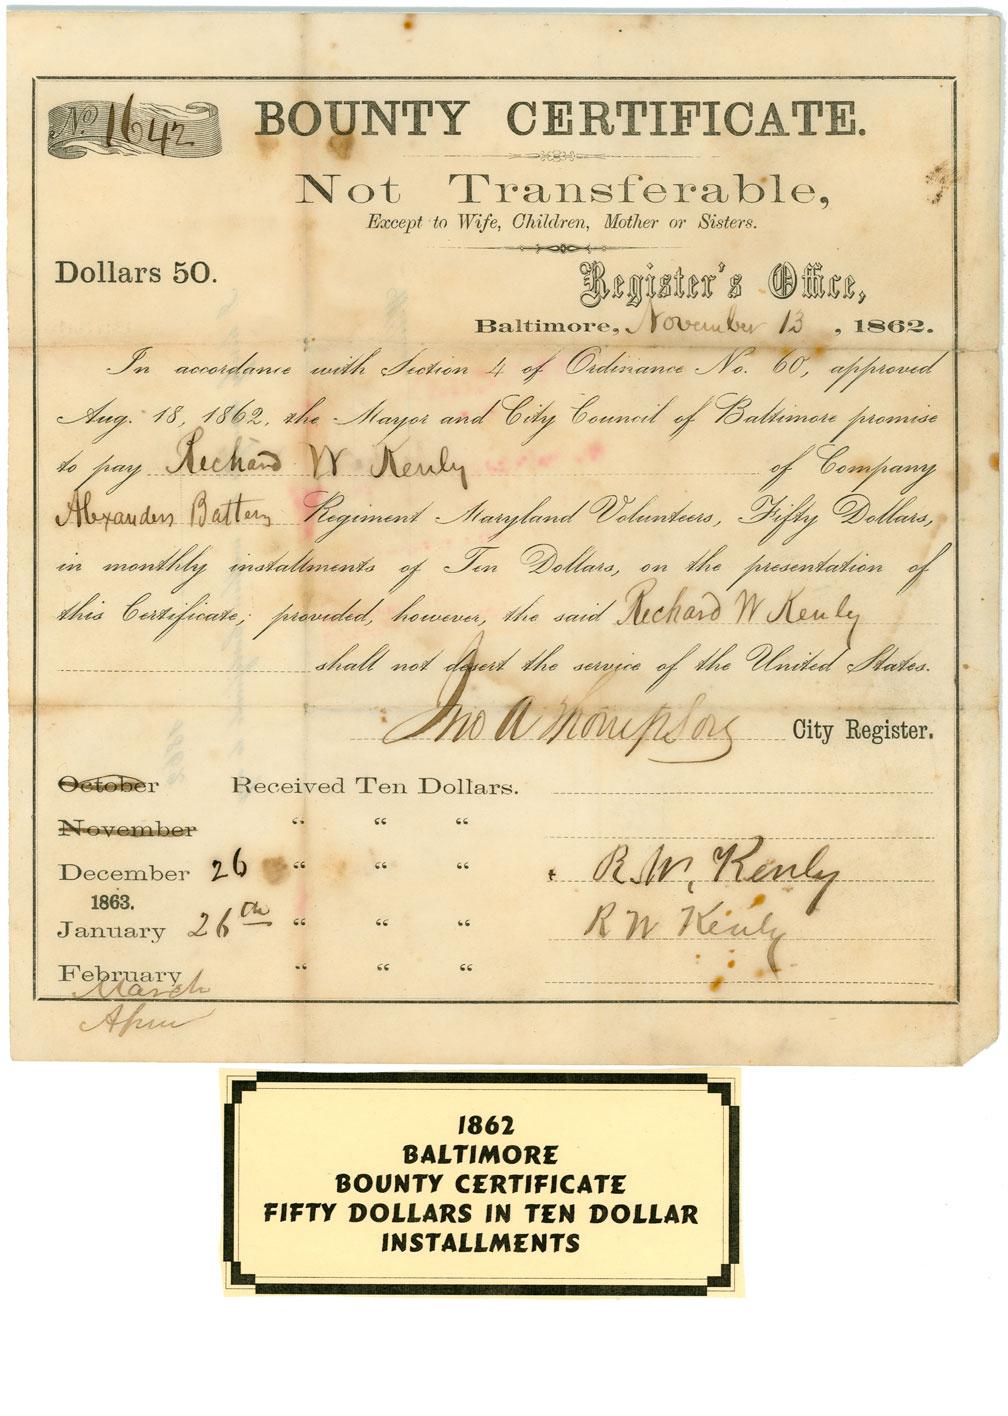 No. 1642
BOUNTY CERTIFICATE.
Not Transferable,
Except to Wife, Children, Mother or Sisters.
Dollars 50.
Register's Office,
Baltimore, November 13, 1862.
In accordance with Section 4 of Ordinance No. 60, approved
Aug. 18, 1862, the Mayor and City Council of Baltimore promise
to pay Richard W Kenly of Company
Alexanders Battery Regiment Maryland Volunteers, Fifty Dollars,
in monthly installments of Ten Dollars, on the presentation of
this Certificate; provided, however, the said Richard W Kenly
shall not desert the service of the United States.
Jno A Thompson City Register.
October Received Ten Dollars.
November " " "
December 26 " " " R. W. Kenly
1863.
January 26th " " " R W Kenly
February " " "
March
April
1862
BALTIMORE
BOUNTY CERTIFICATE
FIFTY DOLLARS IN TEN DOLLAR
INSTALLMENTS